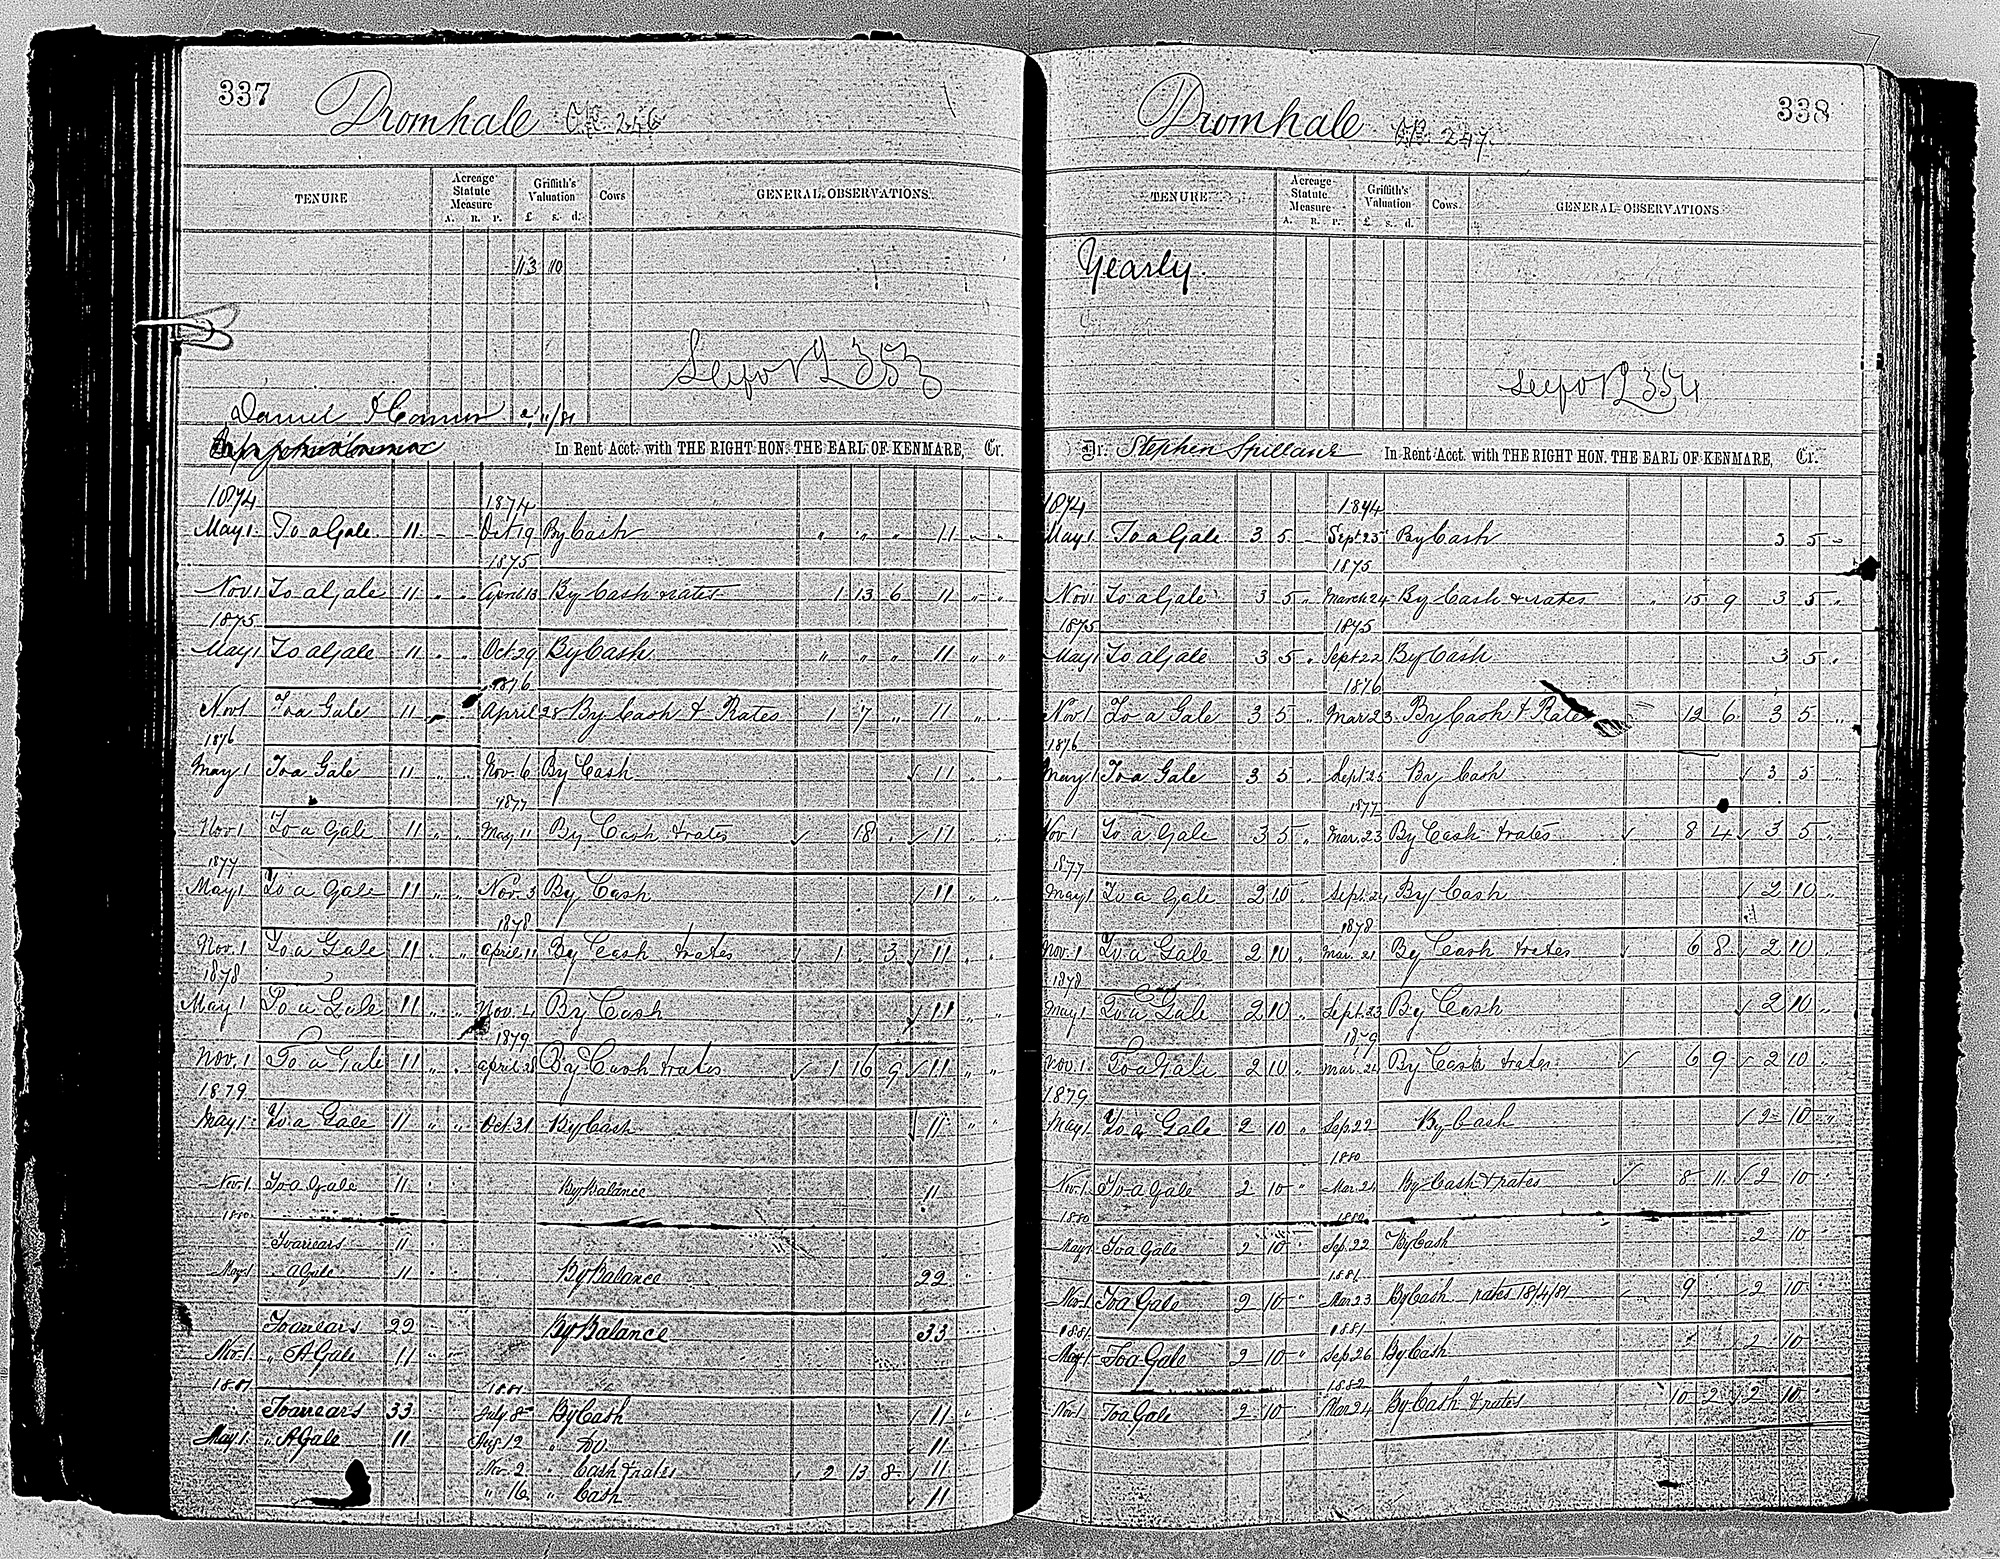 337
Dromhale CR 246
TENURE
Acreage Statute Measure
A. R. P.
Griffith's Valuation
£ s. d.
Cows
GENERAL OBSERVATIONS
13 10
See fol 353
Daniel
In Rent Acct. with THE RIGHT HON. THE EARL OF KENMARE, Cr.
1874 1874
May 1 To a Gale 11 - - Oct 19 By Cash " " " 11 " "
1875
Nov 1 To a Gale 11 " " April 13 By Cash & rates 1 13 6 11 " "
1875
May 1 To a Gale 11 " " Oct 29 By Cash " " " 11 " "
1876
Nov 1 To a Gale 11 " " April 28 By Cash & Rates 1 7 " 11 " "
1876
May 1 To a Gale 11 " " Nov. 6 By Cash ✓ 11 " "
1877
Nov 1 To a Gale 11 " " May 11 By Cash & rates ✓ 18 . ✓ 11 " "
1877
May 1 To a Gale 11 " " Nov. 3 By Cash ✓ 11 " "
1878
Nov. 1 To a Gale 11 " " April 11 By Cash & rates ✓ 1 . 3 ✓ 11 " "
1878
May 1 To a Gale 11 " " Nov. 4 By Cash ✓ 11 " "
1879
Nov. 1 To a Gale 11 " " April 28 By Cash & rates ✓ 1 16 9 ✓ 11 " "
1879
May 1 To a Gale 11 " " Oct 21 By Cash ✓ 11 " "
Nov 1. To a Gale 11 By Balance 11
1880
To arrears 11
May 1 " A Gale 11 By Balance 22
To arrears 22 By Balance 33
Nov. 1. " A Gale 11
1881 1881
To arrears 33 July 8 By Cash ✓ 11
May 1 " A Gale 11 Aug 12 " Do ✓ 11
Nov. 2 " Cash & rates ✓ 2 13 8 ✓ 11
" 16 " Cash ✓ 11
338
Dromhale CR 247.
TENURE
Acreage Statute Measure
A. R. P.
Griffith's Valuation
£ s. d.
Cows.
GENERAL OBSERVATIONS
Yearly.
See fol 354
Dr. Stephen Spillane In Rent Acct. with THE RIGHT HON. THE EARL OF KENMARE, Cr.
1874 1874
May 1 To a Gale 3 5 - Sept 25 By Cash 3 5 -
1875
Nov 1 To a Gale 3 5 " March 24 By Cash & rates " 15 9 3 5 "
1875 1875
May 1 To a Gale 3 5 " Sept 22 By Cash 3 5 "
1876
Nov 1 To a Gale 3 5 " Mar 23 By Cash & Rates 12 6 3 5 "
1876
May 1 To a Gale 3 5 " Sept 25 By Cash ✓ 3 5 "
1877
Nov. 1 To a Gale 3 5 " Mar. 23 By Cash & rates ✓ 8 4 ✓ 3 5 "
1877
May 1 To a Gale 2 10 " Sept. 24 By Cash ✓ 2 10 "
1878
Nov. 1 To a Gale 2 10 " Mar. 21 By Cash & rates ✓ 6 8 ✓ 2 10 "
1878
May 1 To a Gale 2 10 " Sept. 23 By Cash ✓ 2 10 "
1879
Nov. 1 To a Gale 2 10 " Mar. 24 By Cash & rates ✓ 6 9 ✓ 2 10 "
1879
May 1 To a Gale 2 10 " Sep 22 By Cash ✓ 2 10 "
1880
Nov. 1 To a Gale 2 10 " Mar. 24 By Cash & rates ✓ 8 11 ✓ 2 10
1880 1880
May 1 To a Gale 2 10 " Sep. 22 By Cash 2 10
1881
Nov. 1 To a Gale 2 10 " Mar 23 By Cash rates 18/4/81 9 2 10
1881 1881
May 1 To a Gale 2 10 " Sep 26 By Cash 2 10
1882
Nov 1 To a Gale 2 10 Mar 24 By Cash & rates 10 2 ✓ 2 10